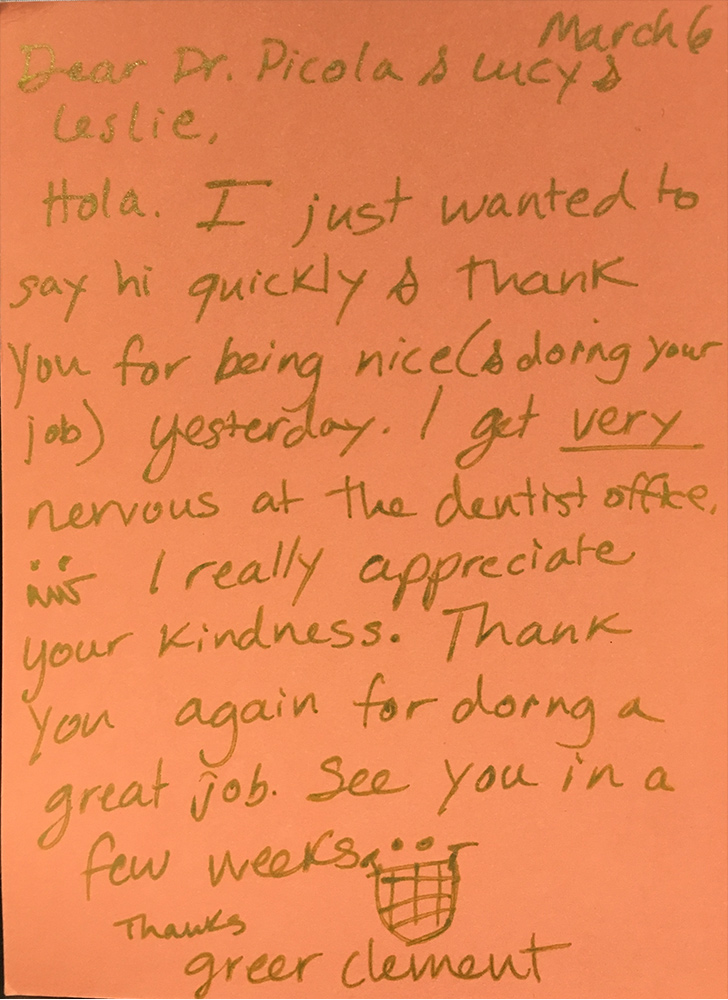 March 6
Dear Dr. Picola & Lucy &
Leslie,
Hola. I just wanted to
say hi quickly & thank
you for being nice (& doing your
job) yesterday. I get very
nervous at the dentist office.
I really appreciate
your kindness. Thank
you again for doing a
great job. See you in a
few weeks.
Thanks
greer clement